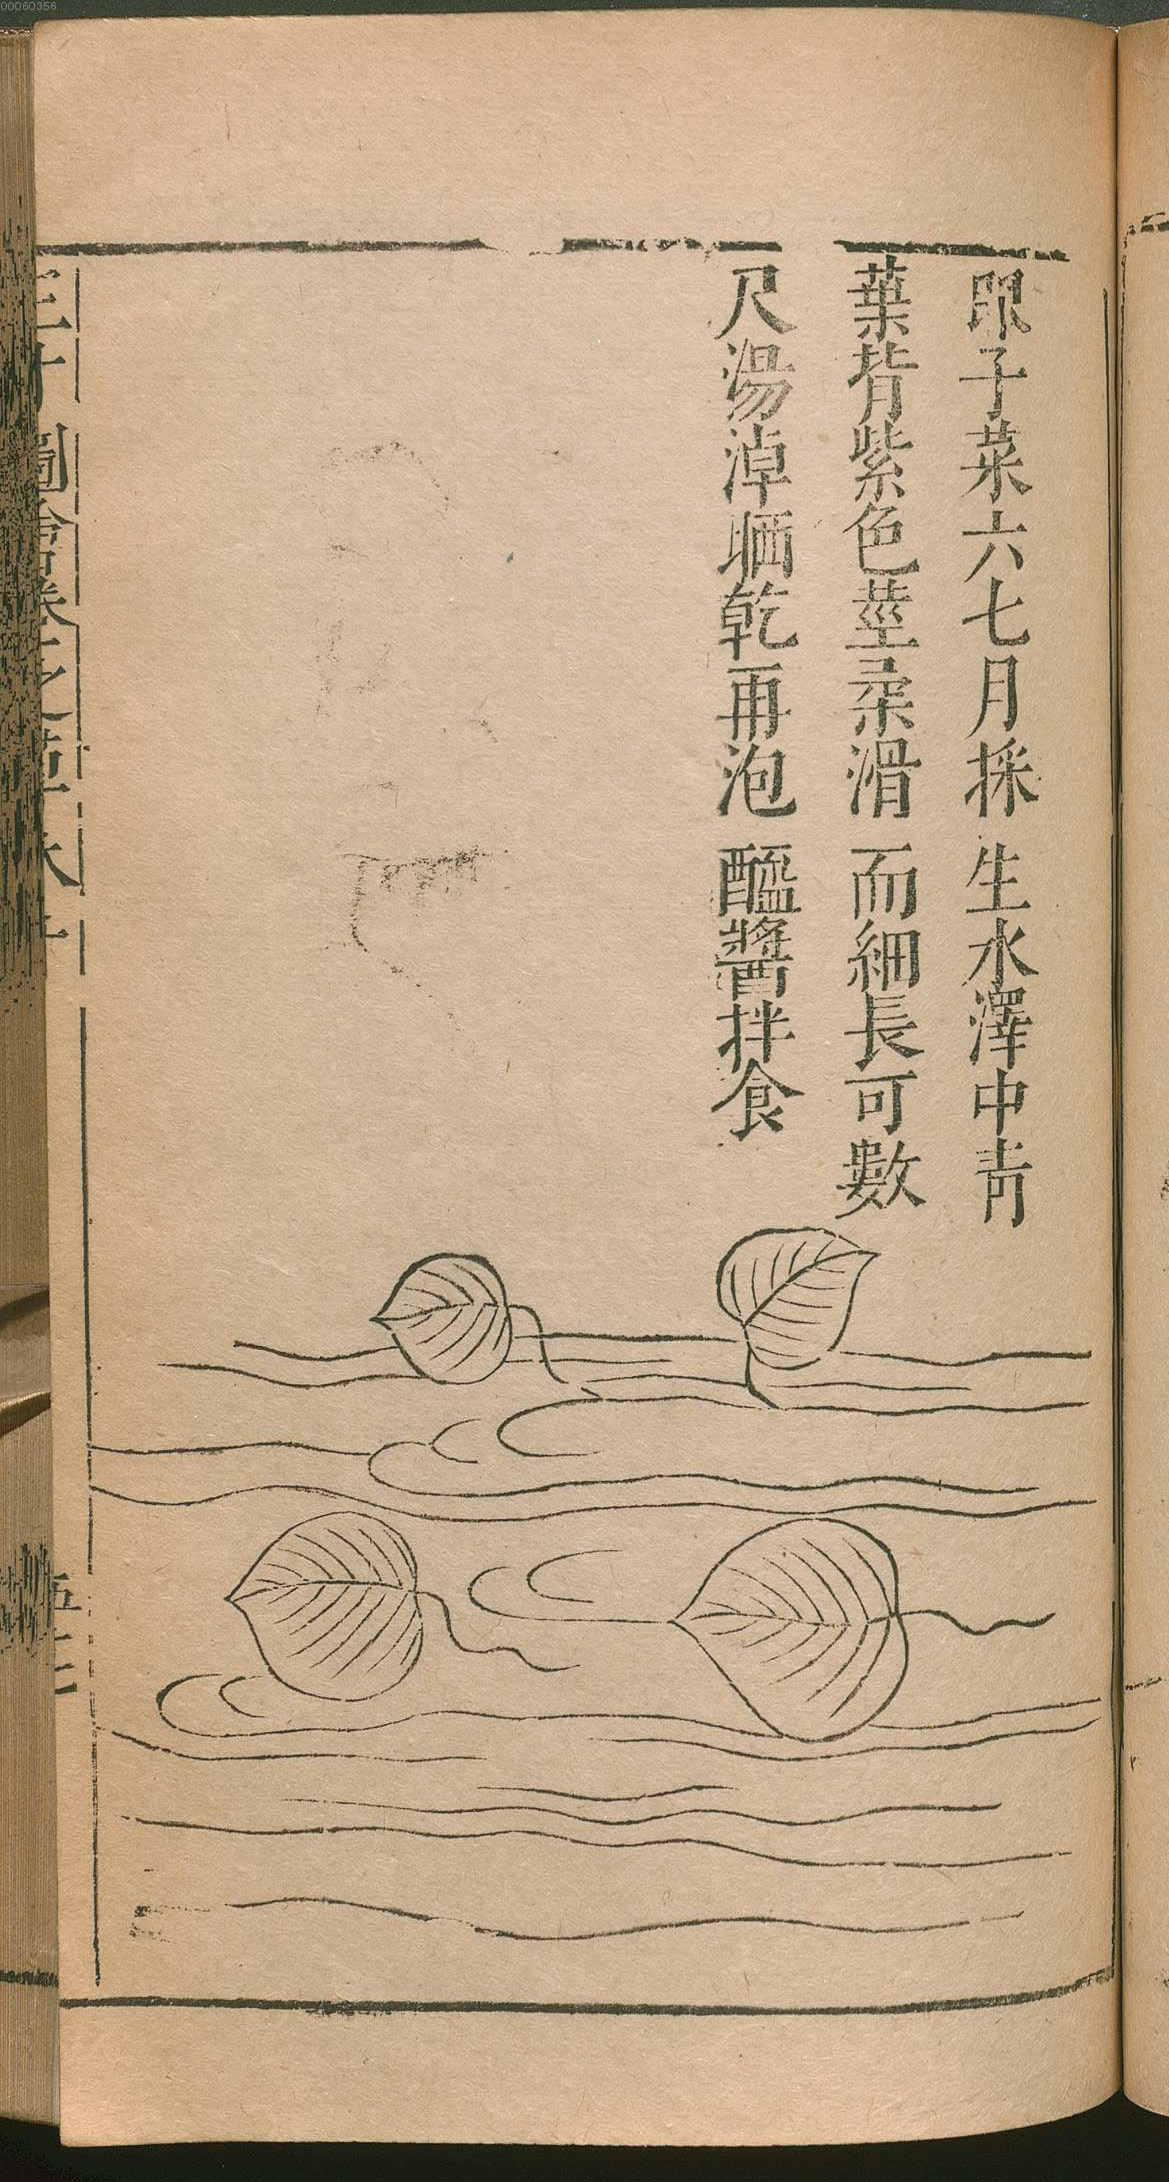 00060356
眼子菜六七月採生水澤中青
葉背紫色莖柔滑而細長可數
尺湯淖晒乾再泡醯醬拌食
三才圖會